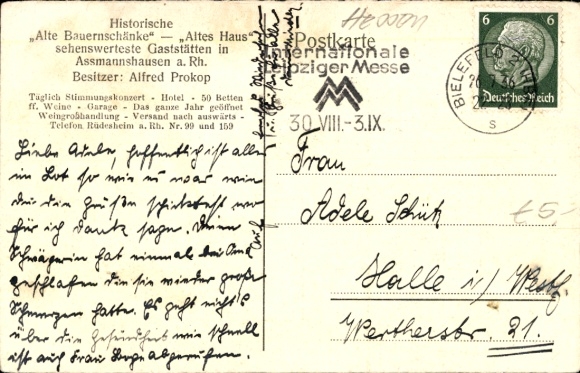 Historische
„Alte Bauernschänke" — „Altes Haus"
sehenswerteste Gaststätten in
Assmannshausen a. Rh.
Besitzer: Alfred Prokop
Täglich Stimmungskonzert - Hotel - 50 Betten
ff. Weine - Garage - Das ganze Jahr geöffnet
Weingroßhandlung - Versand nach auswärts -
Telefon Rüdesheim a. Rh. Nr. 99 und 159
Liebe Adele, hoffentlich ist alles
im Lot so wie es war wie
du die Grüße schicktest wo
für ich danke sage. Deine
Schwägerin hat einmal bei uns
geschlafen die sie wieder große
Schmerzen hatte. Es geht nichts
über die Gesundheit wie schnell
ist auch Frau abgerufen.
Postkarte
Internationale
Leipziger Messe
30.VIII.-3.IX.
BIELEFELD 2
s
6 6
Deutsches Reich
Frau
Adele Schütz
Halle i/ Westf.
Wertherstr. 21.
£5,-